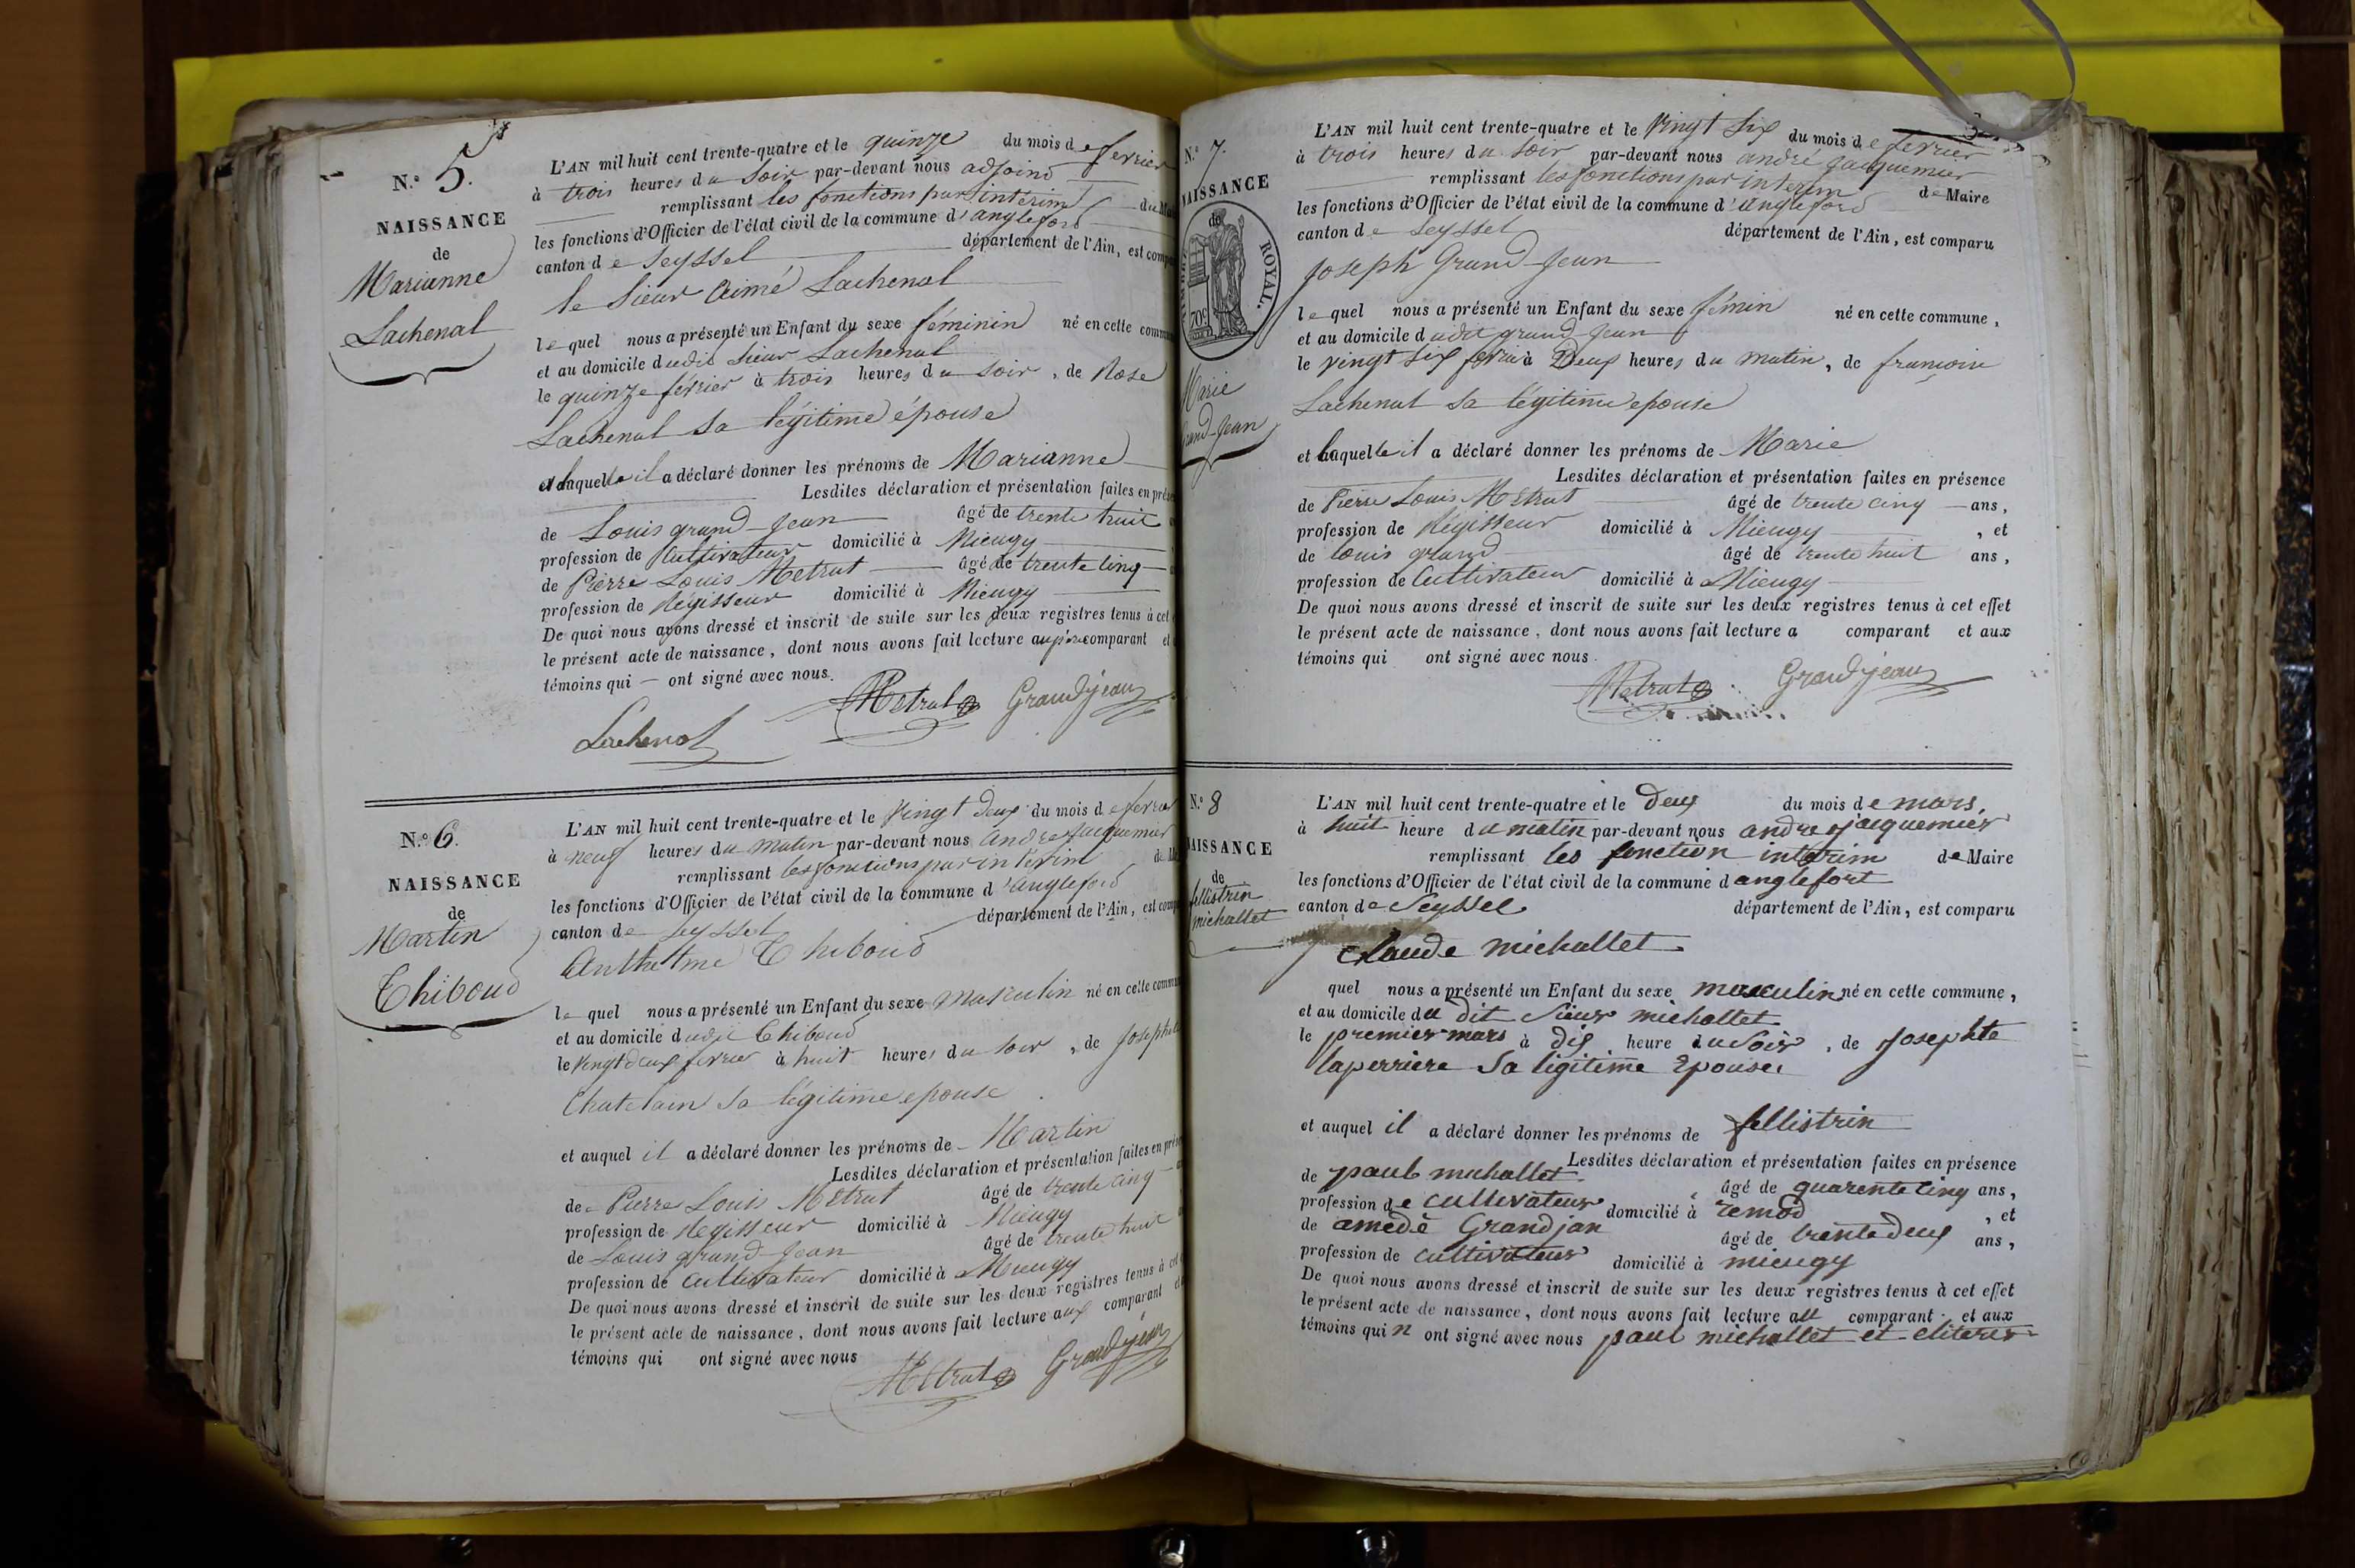 N.° 5.
NAISSANCE
de
Marianne
Lachenal
L'AN mil huit cent trente-quatre et le quinze du mois de fevrier
à trois heures du soir par-devant nous adjoind
remplissant les fonctions par intérim du
les fonctions d'Officier de l'état civil de la commune d'angleford
canton de Seyssel département de l'Ain, est
le Sieur Aimé Lachenal
lequel nous a présenté un Enfant du sexe féminin né en cette
et au domicile dudit Sieur Lachenal
le quinze février à trois heures du soir, de Rose
Lachenal sa légitime épouse
et laquelle il a déclaré donner les prénoms de Marianne
Lesdites déclaration et présentation faites en
de Louis grand-Jean âgé de trente huit
profession de Cultivateur domicilié à Mieugy
de Pierre Louis Metrat âgé de trente cinq
profession de Régisseur domicilié à Mieugy
De quoi nous avons dressé et inscrit de suite sur les deux registres tenus à cet
le présent acte de naissance, dont nous avons fait lecture au père comparant et
témoins qui — ont signé avec nous.
Metrat Grandjean
Lachenal
N.° 6.
NAISSANCE
de
Martin
Thiboud
L'AN mil huit cent trente-quatre et le vingt deux du mois de
à neuf heures du matin par-devant nous andre jacquemier
remplissant les fonctions par intérim de
les fonctions d'Officier de l'état civil de la commune d'Angleford
canton de Seyssel département de l'Ain, est
Anthelme Thiboud
lequel nous a présenté un Enfant du sexe masculin né en cette
et au domicile dudit Thiboud
le vingt deux fevrier à huit heures du soir, de
Chatelain sa légitime epouse
et auquel il a déclaré donner les prénoms de Martin
Lesdites déclaration et présentation faites en
de Pierre Louis Metrat âgé de trente cinq
profession de Régisseur domicilié à Mieugy
de Louis grand-Jean âgé de trente huit
profession de Cultivateur domicilié à Mieugy
De quoi nous avons dressé et inscrit de suite sur les deux registres tenus à
le présent acte de naissance, dont nous avons fait lecture aux comparant
témoins qui ont signé avec nous
Metrat Grandjean
N.° 7.
NAISSANCE
de
ROYAL.
70c
Marie
Grand-Jean
L'AN mil huit cent trente-quatre et le vingt six du mois de fevrier
à trois heures du soir par-devant nous andré jacquemier
remplissant les fonctions par interim de Maire
les fonctions d'Officier de l'état civil de la commune d'Angleford
canton de Seyssel département de l'Ain, est comparu
Joseph Grand-Jean
lequel nous a présenté un Enfant du sexe fémin né en cette commune,
et au domicile dudit grand Jean
le vingt six à Deux heures du matin, de
Lachenal sa légitime epouse
et laquelle il a déclaré donner les prénoms de Marie
Lesdites déclaration et présentation faites en présence
de Pierre Louis Metrat âgé de trente cinq — ans,
profession de Régisseur domicilié à Mieugy, et
de Louis grand âgé de trente huit ans,
profession de Cultivateur domicilié à Mieugy
De quoi nous avons dressé et inscrit de suite sur les deux registres tenus à cet effet
le présent acte de naissance, dont nous avons fait lecture a comparant et aux
témoins qui ont signé avec nous.
Metrat Grandjean
N.° 8
NAISSANCE
de
fellistrin
michallet
L'AN mil huit cent trente-quatre et le Deux du mois de mars,
à huit heure du matin par-devant nous andre jacquemier
remplissant les fonction interim de Maire
les fonctions d'Officier de l'état civil de la commune d anglefort
canton de Seyssel département de l'Ain, est comparu
claude michallet
quel nous a présenté un Enfant du sexe masculin né en cette commune,
et au domicile du dit sieur michallet
le premier mars à dix heure du soir, de Josephte
laperriere Sa ligitime Epouse
et auquel il a déclaré donner les prénoms de fellistrin
Lesdites déclaration et présentation faites en présence
de paul michallet âgé de quarente cinq ans,
profession de cultivateur domicilié à remod, et
de amédè Grandjan âgé de trente deux ans,
profession de cultivateur domicilié à mieugy
De quoi nous avons dressé et inscrit de suite sur les deux registres tenus à cet effet
le présent acte de naissance, dont nous avons fait lecture au comparant et aux
témoins qui n ont signé avec nous paul michallet et